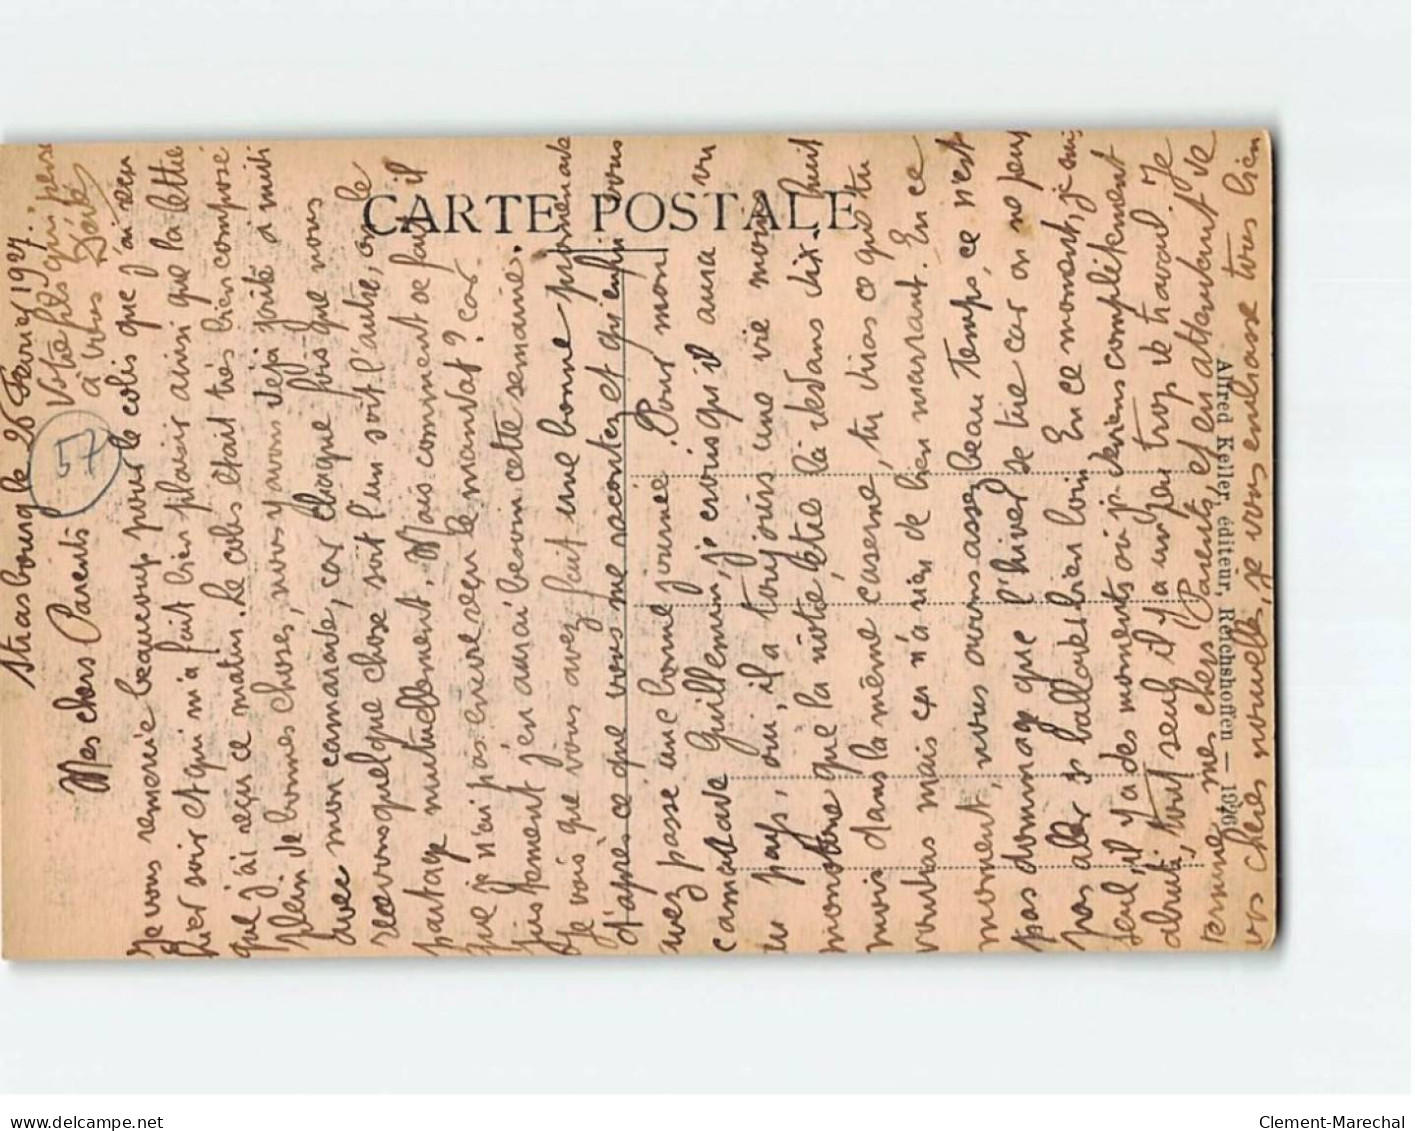 Strasbourg le 26 Fevrier 1927.
Mes chers Parents
Je vous remercie beaucoup pour le colis que j'ai reçu
hier soir et qui m'a fait bien plaisir ainsi que la lettre
que j'ai reçu ce matin. Le colis était très bien composé
plein de bonnes choses, nous y avons déjà goûté à midi
avec mon camarade, car chaque fois que nous
recevons quelque chose soit l'un soit l'autre, on le
partage mutuellement. Mais comment se fait il
que je n'ai pas encore reçu le mandat? car
justement j'en aurai besoin cette semaine.
Je vois que vous avez fait une bonne promenade
d'après ce que vous me racontez et qu'enfin vous
avez passé une bonne journée. Pour mon
camarade Guillemin, je crois qu'il aura vu
du pays, oui, il a toujours une vie moins
monotone que la nôtre, être là dedans dix, huit
mois dans la même caserne, tu diras ce que tu
voudras mais ça n'a rien de bien marrant. En ce
moment, nous avons assez beau temps, ce n'est
pas dommage que l'hiver se tire car on ne peut
pas aller se ballader bien loin. En ce moment, je suis
seul, il y a des moments où je deviens complètement
abruti, tout seul il y a un peu trop de travail. Je
termine mes chers Parents et en attendant de
vos chères nouvelles, je vous embrasse tous bien
Votre fils qui pense
à vous
57
CARTE POSTALE
Alfred Keller, éditeur, Reichshoffen — 1926
delcampe.net
Clement-Marechal